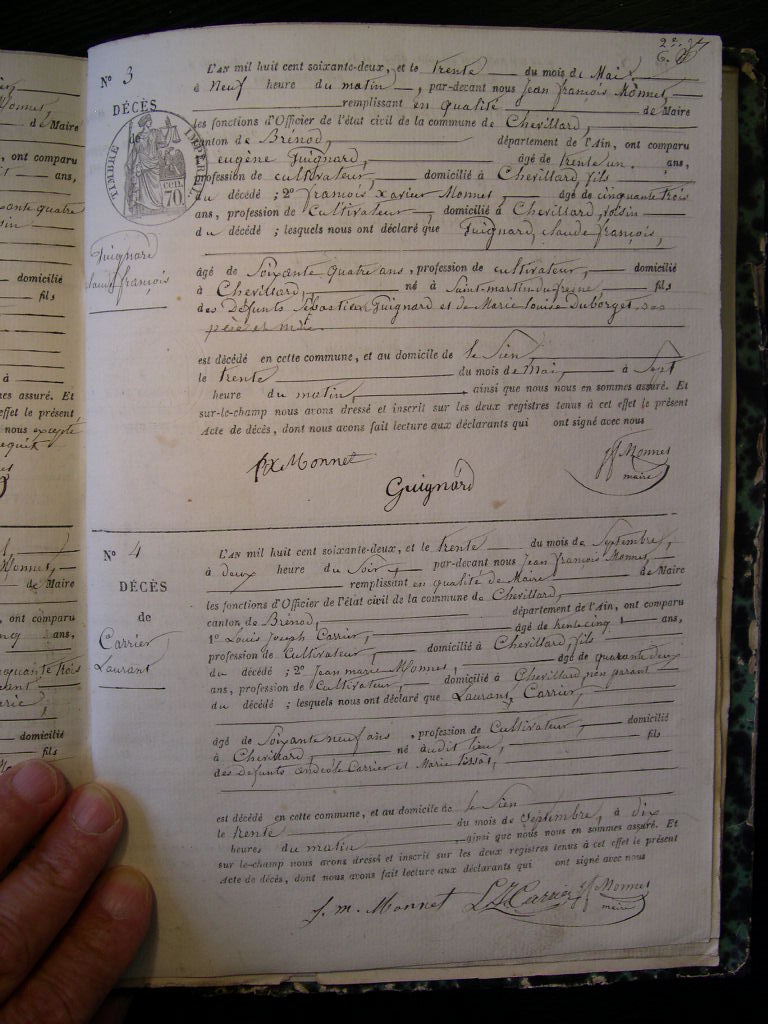 N° 3
L'AN mil huit cent soixante-deux, et le trente du mois de Mai,
à Neuf heure du matin, par-devant nous Jean François Monnet,
remplissant en qualité de Maire
DÉCÈS
les fonctions d'Officier de l'état civil de la commune de Chevillard,
de
canton de Brénod, département de l'Ain, ont comparu
TIMBRE IMPÉRIAL
70
eugène Guignard, âgé de trente un ans,
profession de cultivateur, domicilié à Chevillard, fils
du décédé ; 2° françois xavier Monnet âgé de cinquante trois
ans, profession de Cultivateur, domicilié à Chevillard, voisin
du décédé ; lesquels nous ont déclaré que Guignard, claude françois,
Guignard
claude françois
âgé de Soixante quatre ans, profession de cultivateur, domicilié
à Chevillard, né à Saint-martin-du-fresne fils
des Défunts Sébastien Guignard et de Marie Louise Duborget ses
père et mère
est décédé en cette commune, et au domicile de le Sien,
le trente du mois de Mai, à Sept
heure du matin, ainsi que nous nous en sommes assuré. Et
sur-le-champ nous avons dressé et inscrit sur les deux registres tenus à cet effet le présent
Acte de décès, dont nous avons fait lecture aux déclarants qui ont signé avec nous
fx Monnet
Guignard
Monnet
maire
N° 4
L'AN mil huit cent soixante-deux, et le trente du mois de Septembre,
à deux heure du Soir, par-devant nous Jean François Monnet,
remplissant en qualité de Maire de Maire
DÉCÈS
les fonctions d'Officier de l'état civil de la commune de Chevillard,
de
canton de Brénod, département de l'Ain, ont comparu
Carrier
Laurant
1° Louis Joseph Carrier, âgé de trente cinq ans,
profession de Cultivateur, domicilié à Chevillard, fils
du décédé ; 2° Jean marie Monnet, âgé de quarante deux
ans, profession de Cultivateur, domicilié à Chevillard, non parant
du décédé ; lesquels nous ont déclaré que Laurant, Carrier,
âgé de Soixante neuf ans, profession de Cultivateur, domicilié
à Chevillard, né audit lieu, fils
des Defunts Carrier et Marie
est décédé en cette commune, et au domicile de le Sien
le trente du mois de Septembre, à dix
heures du matin ainsi que nous nous en sommes assuré. Et
sur le-champ nous avons dressé et inscrit sur les deux registres tenus à cet effet le présent
Acte de décès, dont nous avons fait lecture aux déclarants qui ont signé avec nous
J. m. Monnet
L J Carrier
Monnet
maire